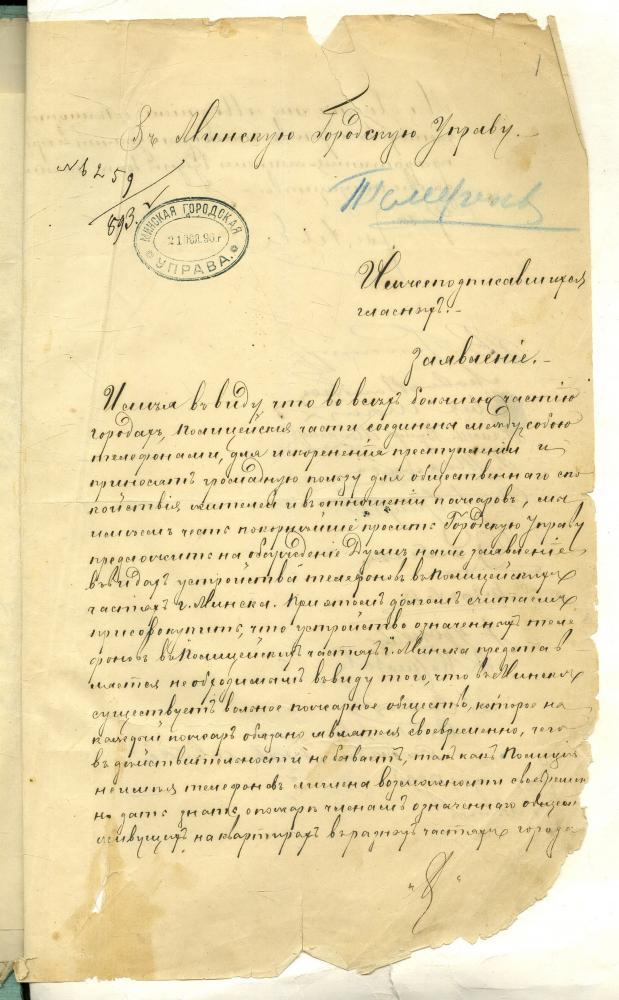 1
Въ Минскую Городскую Управу.
№ 259
893.
МИНСКАЯ ГОРОДСКАЯ
21 ІЮЛ. 90 г
УПРАВА.
Телефонъ
Нижеподписавшихся
гласныхъ.
Заявленіе.
Имѣя въ виду, что во всѣхъ большею частію
городахъ, Полицейскія части соединены между собою
телефонами, для искорененія преступленій и
приносятъ громадную пользу для общественнаго спо
койствія жителей и въ отношеніи пожаровъ, мы
имѣемъ честь покорнѣйше просить Городскую Управу
предложить на обсужденіе Думы наше заявленіе
въ видахъ устройства телефоновъ въ Полицейскихъ
частяхъ г. Минска. При этомъ долгомъ считаемъ
присовокупить, что устройство означенныхъ теле
фоновъ въ Полицейскихъ частяхъ г. Минска представ
ляется необходимымъ въ виду того, что въ Минскѣ
существуетъ вольное пожарное общество, которое на
каждый пожаръ обязано являться своевременно, чего
въ дѣйствительности не бываетъ, такъ какъ Полиція
не имѣя телефоновъ лишена возможности своевремен
но дать знать, о пожарѣ членамъ означеннаго общест
живущихъ на квартирахъ въ разныхъ частяхъ города